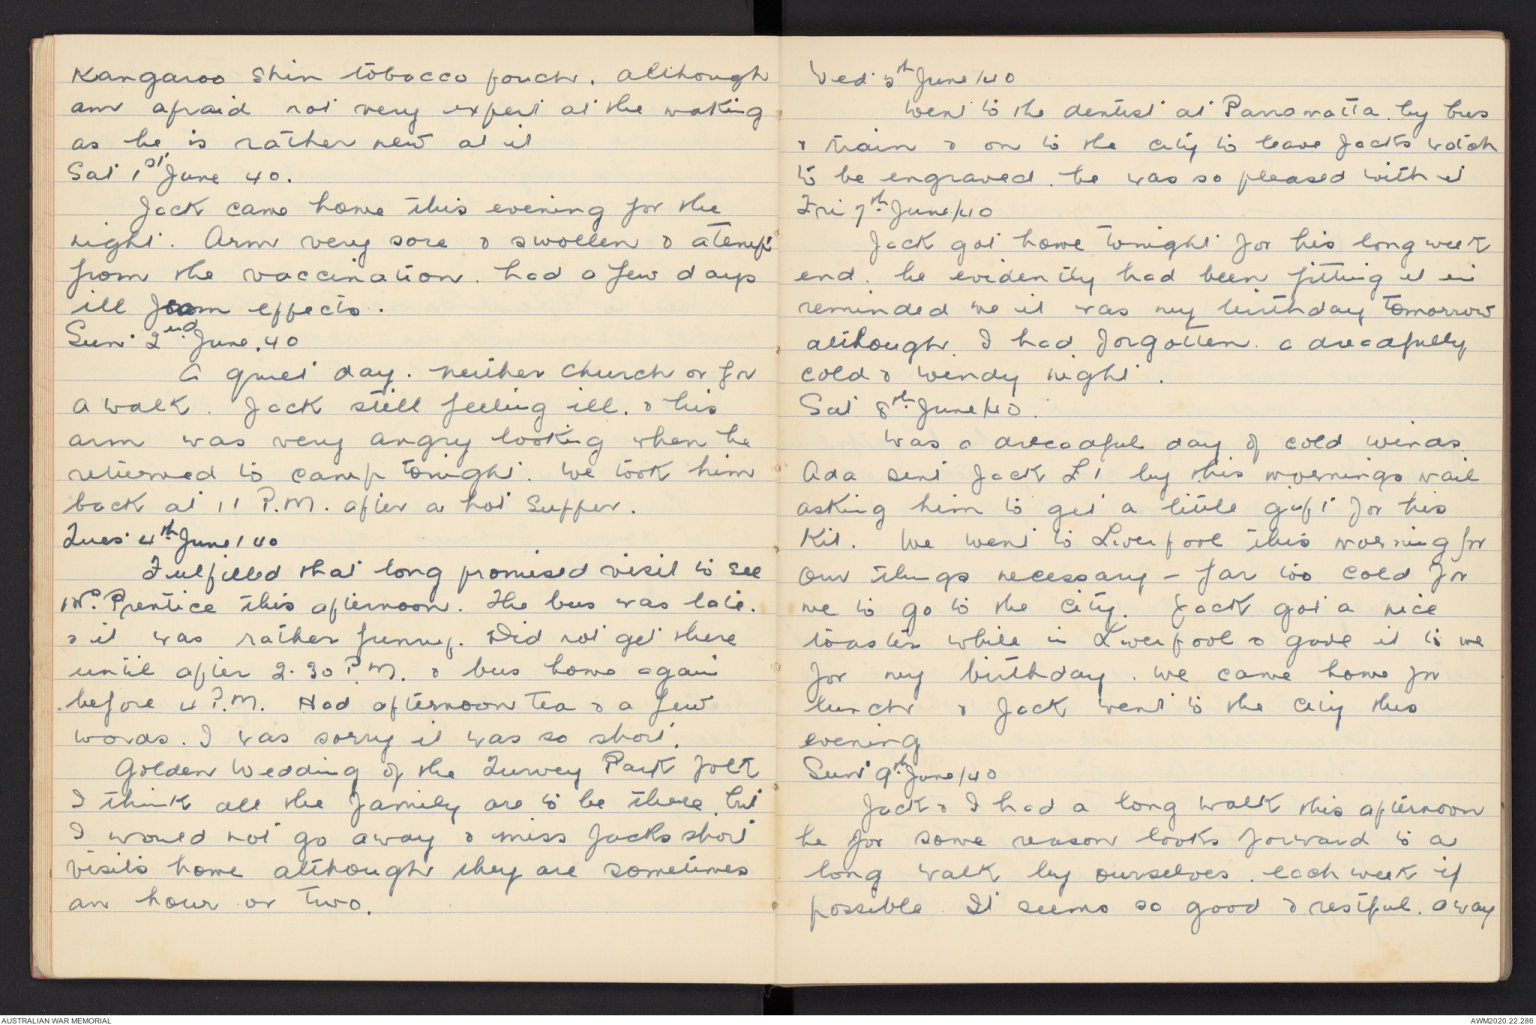 Kangaroo skin tobacco pouch. although
am afraid not very expert at the making
as he is rather new at it
Sat 1st June 40.
Jack came home this evening for the
night. Arm very sore & swollen & a temp
from the vaccination. had a few days
ill from effects.
Sun 2nd June. 40
A quiet day. neither church or for
a walk. Jack still feeling ill. & his
arm was very angry looking when he
returned to camp tonight. We took him
back at 11 P.M. after a hot supper.
Tues 4th June / 40
Fulfilled that long promised visit to see
Mrs. Prentice this afternoon. The bus was late.
& it was rather funny. Did not get there
until after 2.30 P.M. & bus home again
before 4 P.M. Had afternoon tea & a few
words. I was sorry it was so short.
Golden Wedding of the Turvey Park folk
I think all the family are to be there but
I would not go away & miss Jacks short
visits home although they are sometimes
an hour or two.
Wed 5th June / 40
Went to the dentist at Parramatta. by bus
& train & on to the city to leave Jacks watch
to be engraved. he was so pleased with it
Fri 7th June / 40
Jack got home tonight for his long week
end. he evidently had been fitting it in
reminded me it was my birthday tomorrow
although I had forgotten. a dreadfully
cold & windy night.
Sat 8th June / 40.
Was a dreadful day of cold winds
Ada sent Jack £1 by this mornings mail
asking him to get a little gift for his
Kit. We went to Liverpool this morning for
our things necessary - far too cold for
me to go to the city. Jack got a nice
toaster while in Liverpool & gave it to me
for my birthday. We came home for
lunch & Jack went to the city this
evening
Sun 9th June / 40
Jack & I had a long walk this afternoon
he for some reason looks forward to a
long walk by ourselves. each week if
possible It seems so good & restful. away
AUSTRALIAN WAR MEMORIAL
AWM2020.22.286